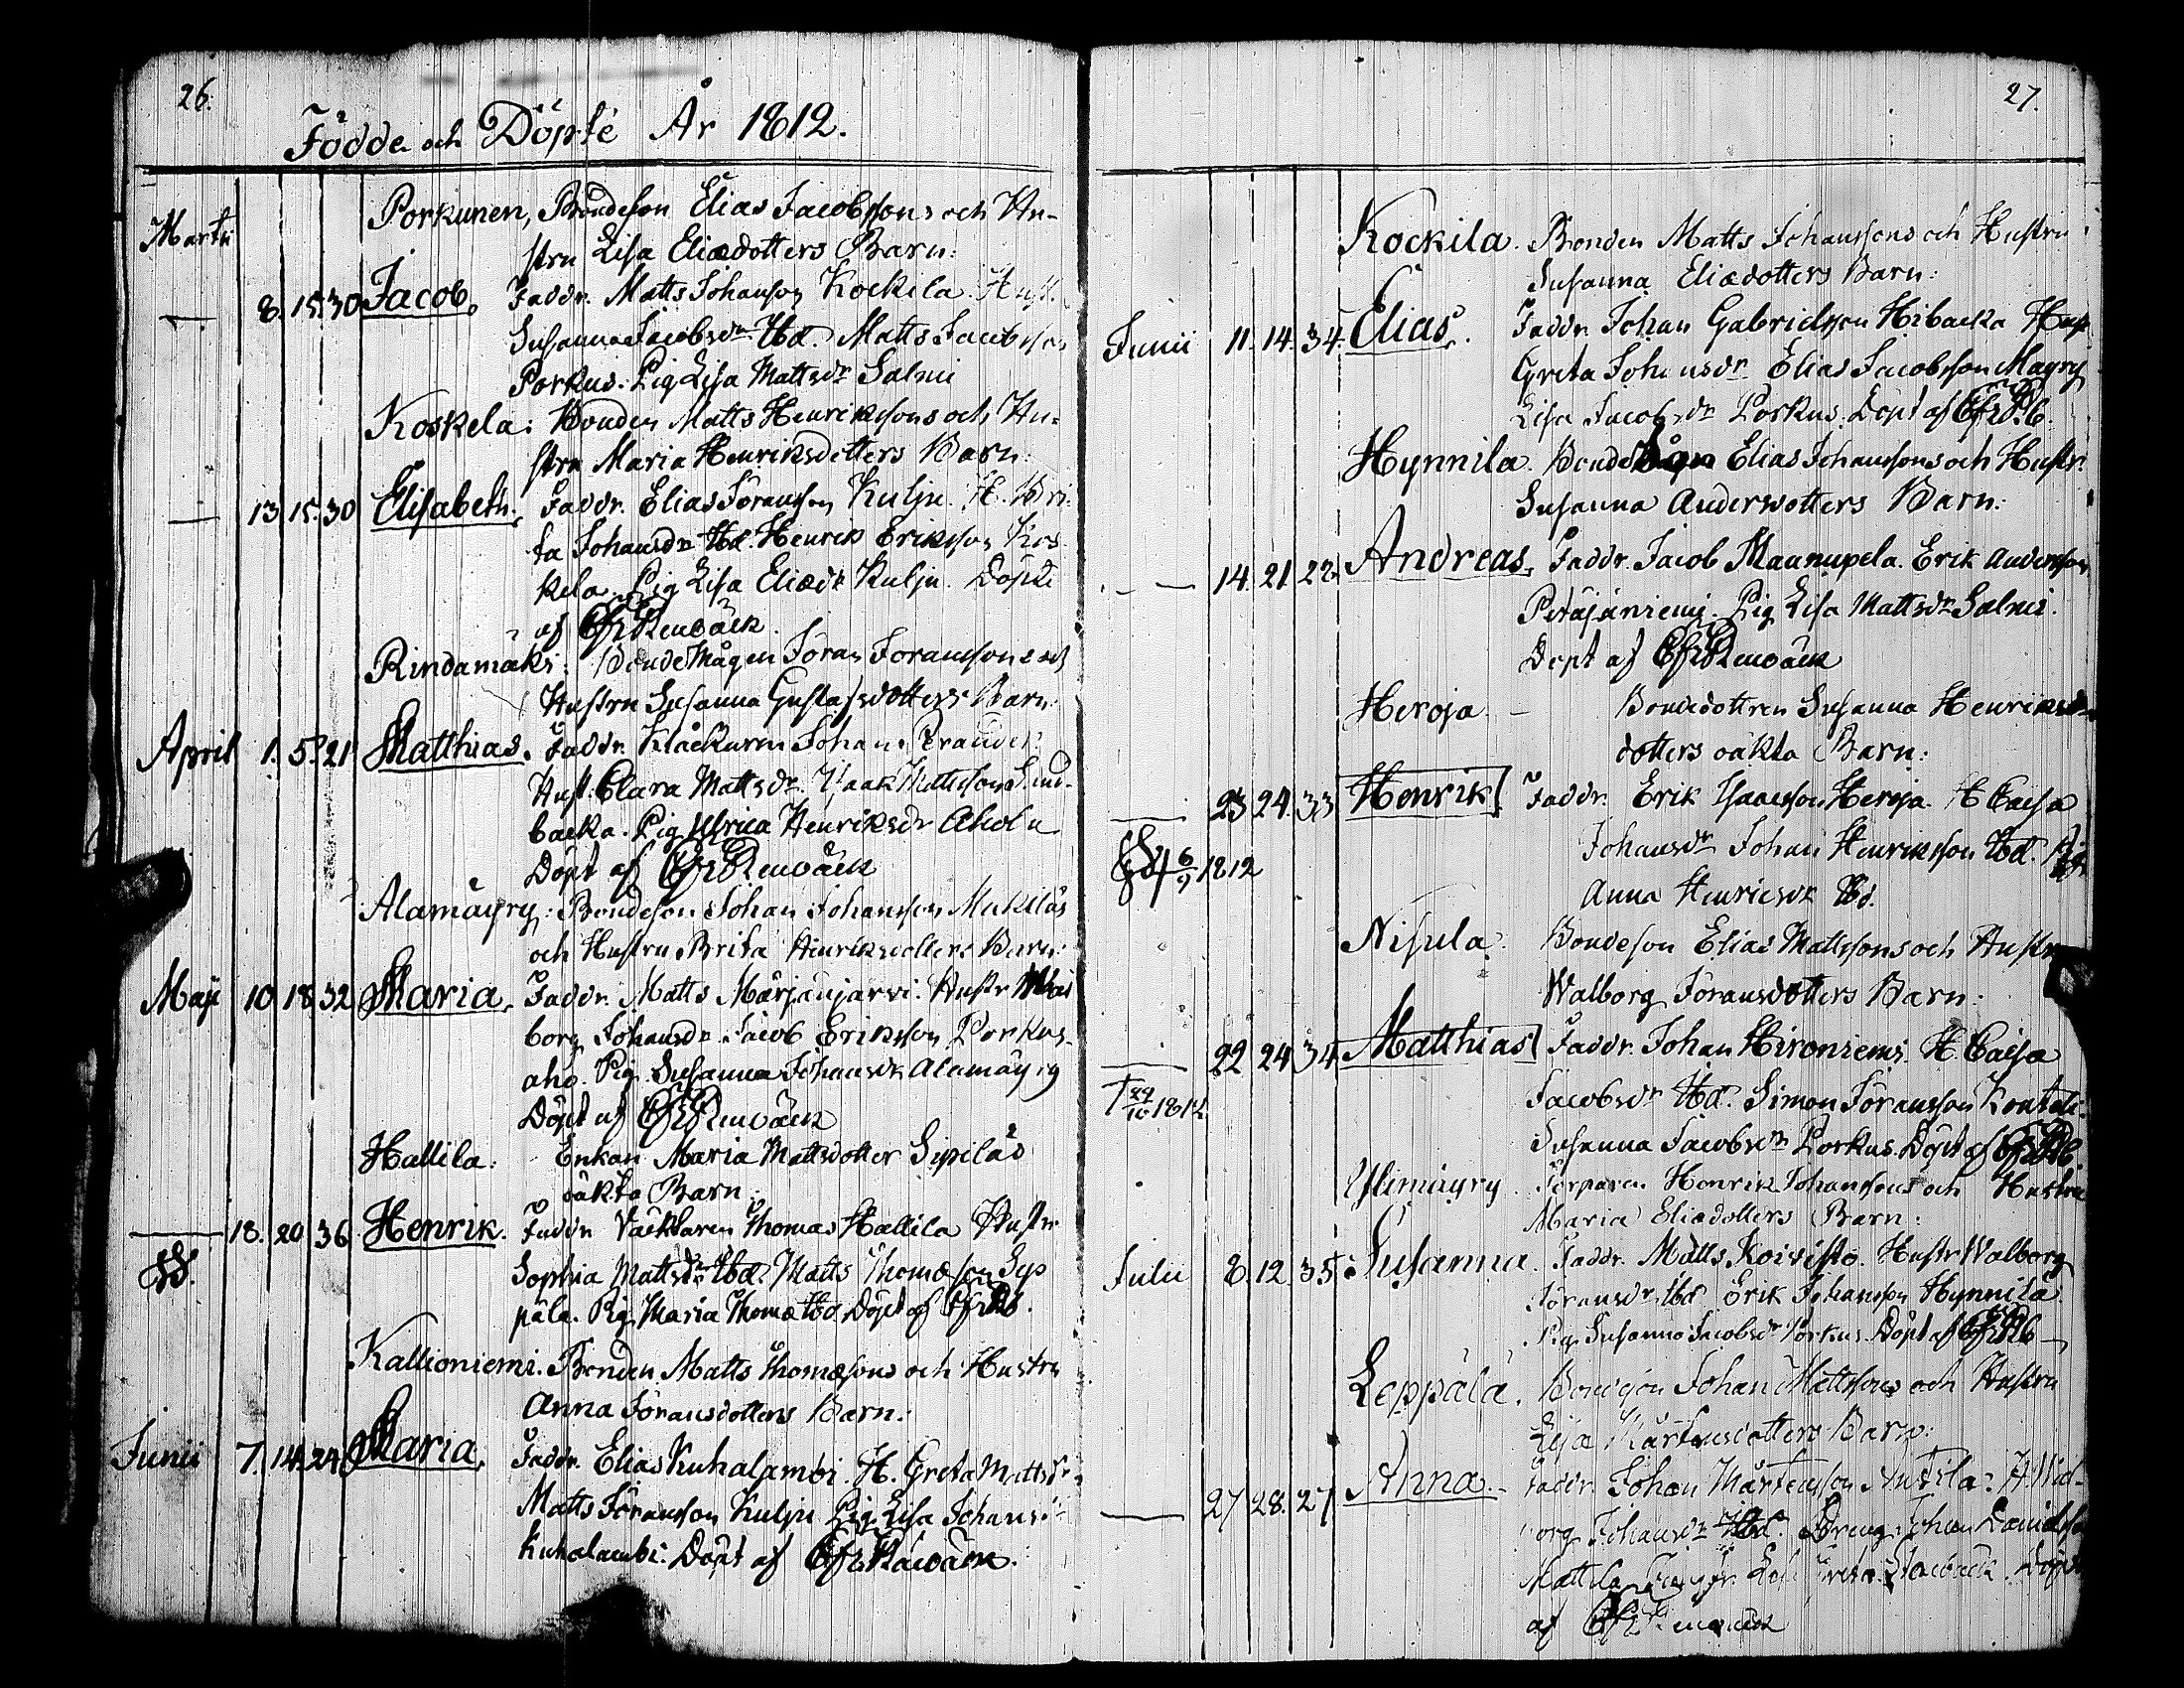 26.
Födde och Döpte År 1812.
Martii
Porkunen, Bondeson Elias Jacobssons och Hu-
stru Lisa Eliædotters Barn:
— 8. 15. 30 Jacob. Faddr. Matts Johansson Kockila. Hust.
Susanna Jacobsdr Ibd. Matts Jacobsson
Porkus. Pig Lisa Mattsdr Salmi
Koskela: Bonden Matts Henrikssons och Hu-
stru Maria Henriksdotters Barn:
— 13 15. 30 Elisabeth. Faddr. Elias Jöransson Kulju. H. Bri-
ta Johansdr Ibd. Henrik Eriksson Kos-
kela. Pig Lisa Eliædr Kulju. Döpt
af Efr Renväck.
Rindamäki: Bondemågen Jöran Joranssons och
Hustru Susanna Gustafsdotters Barn:
April 1. 5. 21 Matthias. Faddr. Klåckaren Johan
Hust. Clara Mattsdr. Isaak Mattsson Lund-
backa. Pig Ulrica Henriksdr Aholu
Döpt af Efr Renväck
Alamäyry: Bondeson Johan Johansson Mukilas
och Hustru Brita Henriksdotters Barn:
Maji 10 18 32 Maria. Faddr. Matts Märjänjärvi. Hustr Wal
borg Johansdr. Jacob Eriksson Porkus-
aho. Pig. Susanna Johansdr Alamäyry
Döpt af Efr Renväck
Hallila: Enkan Maria Mattsdotter Sipilas
oäkta Barn
— 18. 20 36 Henrik. Faddr Thomas Hallila Hustr
Sophia Mattsdr Ibd. Matts Thomæson Syp
päla. Pig Maria Thomæ Ibd Döpt af Efr Rb.
Kallioniemi. Bonden Matts Thomæsons och Hustru
Anna Joransdotters Barn:
Junii 7. 14. 24 Maria. Faddr. Elias Kuhalambi. H. Greta Mattsdr
Matts Jöransson Kulju Pig. Lisa Johansdr
Kuhalambi. Döpt af Efr. Renväck.
27.
Kockila. Bonden Matts Johanssons och Hustru
Susanna Eliædotters Barn:
Junii 11. 14. 34. Elias. Faddr. Johan Gabrielsson Hibacka Hust
Greta Johansdr Elias Jacobsson Mäyry
Lisa Jacobsdr Porkus. Döpt af Efr Rb.
Hynnila. Bondemågen Elias Johanssons och Hustr.
Susanna Andersdotters Barn:
— 14. 21 22. Andreas. Faddr. Jacob Maanupela. Erik Andersson
Petäjäniemi. Pig Lisa Mattsdr Salmi.
Döpt af Efr Renväck
Heroja. — Bondedottren Susanna Henriks-
dotters oäkta Barn:
— 23 24. 33 Henrik. Faddr. Erik Isaacsson Heroja. H Cajsa
6/9 1812
Johansdr Johan Henriksson Ibd. Pig
Anna Henricsdr Ibd.
Nisula. Bondeson Elias Mattssons och Hustru
Walborg Joransdotters Barn:
— 22 24 34 Matthias Faddr. Johan Hironiemi. H. Cajsa
Jacobsdr Ibd. Simon Jöransson
Susanna Jacobsdr Porkus. Döpt af Efr Rb.
Ylimäyry. Torparen Henrik Johanssons och Hustru
Maria Eliædotters Barn:
Julii 8. 12. 35. Susanna. Faddr. Matts Koivisto. Hustr Walborg
Joransdr Ibd Erik Johansson Hynnilä.
Pig. Susanna Jacobsdr Porkus. Döpt af Efr Rb
Leppälä. Johan Mattssons och Hustru
Lisa Mårtensdotters Barn:
— 27 28. 27 Anna. Faddr. Johan Mårtensson Anttila. H. Wal-
borg Johansdr Ibd. Dreng. Johan Davidsson
Mattila Greta Döpt
af Efr Renväck